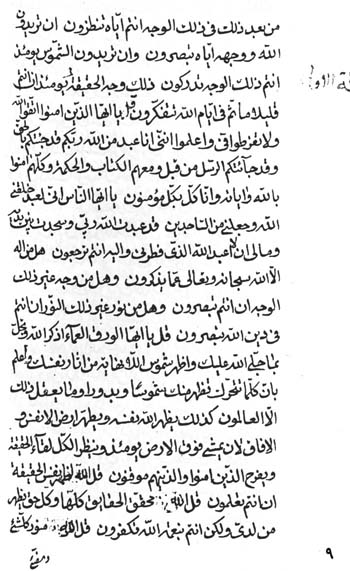 من بعد ذلك في ذلك الوجه انتم اياه تنظرون ان تريدون
الله ووجهه اياه تبصرون وان تريدون الشموس يومئذ
انتم ذلك الوجه تدركون ذلك وجه الحقيقة يومئذ ان انتم
قليلا ما انتم في ايام الله تتفكرون قل يا ايها الذين امنوا اتقوا الله
ولا تفرطوا في واعلموا انني انا عبد من الله ربكم قد جئتكم بالحق
وقد جائتكم الرسل من قبل ومعهم الكتاب والحكمة وكلهم امنوا
بالله واياته وانا كل بكل مؤمنون يا ايها الناس اني لعبد خلقني
الله وجعلني من الساجدين قد عبدت الله ربي وسجدت بين يدي الله
ومالي ان لا اعبد الله الذي فطرني واليه انتم ترجعون هل من اله
الا الله سبحانه وتعالى عما يذكرون وهل من وجه غير ذلك
الوجه ان انتم تبصرون وهل من نور غير ذلك النور ان انتم
في دين الله تبصرون قل يا ايها الورق العماء اذكر الله
بما تجلى الله عليك واظهر شموس الله من اثار نفسك واعلم
بان كلما تتحرك تظهر منك شموسا وبدورا وما يعقل ذلك
الا العالمون كذلك يظهر الله نفسه ويطهر ارض الانفس و
الافاق لان تمشي فوق الارض يومئذ وينظر الكل لقاء الحقيقة
ويفرح الذين امنوا والذينهم موقنون قل الله نفس الحقيقة
ان انتم تعلمون قل الله محقق الحقايق كلها وكل حق يظهر
من لدي ولكن انتم بنعمة الله تكفرون قل الله منور كل شيء
٩